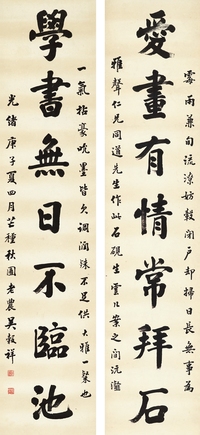 霉雨兼旬流潦妨轂閉戶却掃日長無事為
愛畫有情常拜石
雅聲仁兄同道先生作此石硯生雲几案之間沆瀣
一氣拈豪吮墨皆欠調潤殊不足供大雅一粲也
學書無日不臨池
光緒庚子夏四月芒種秋圃老農吳穀祥